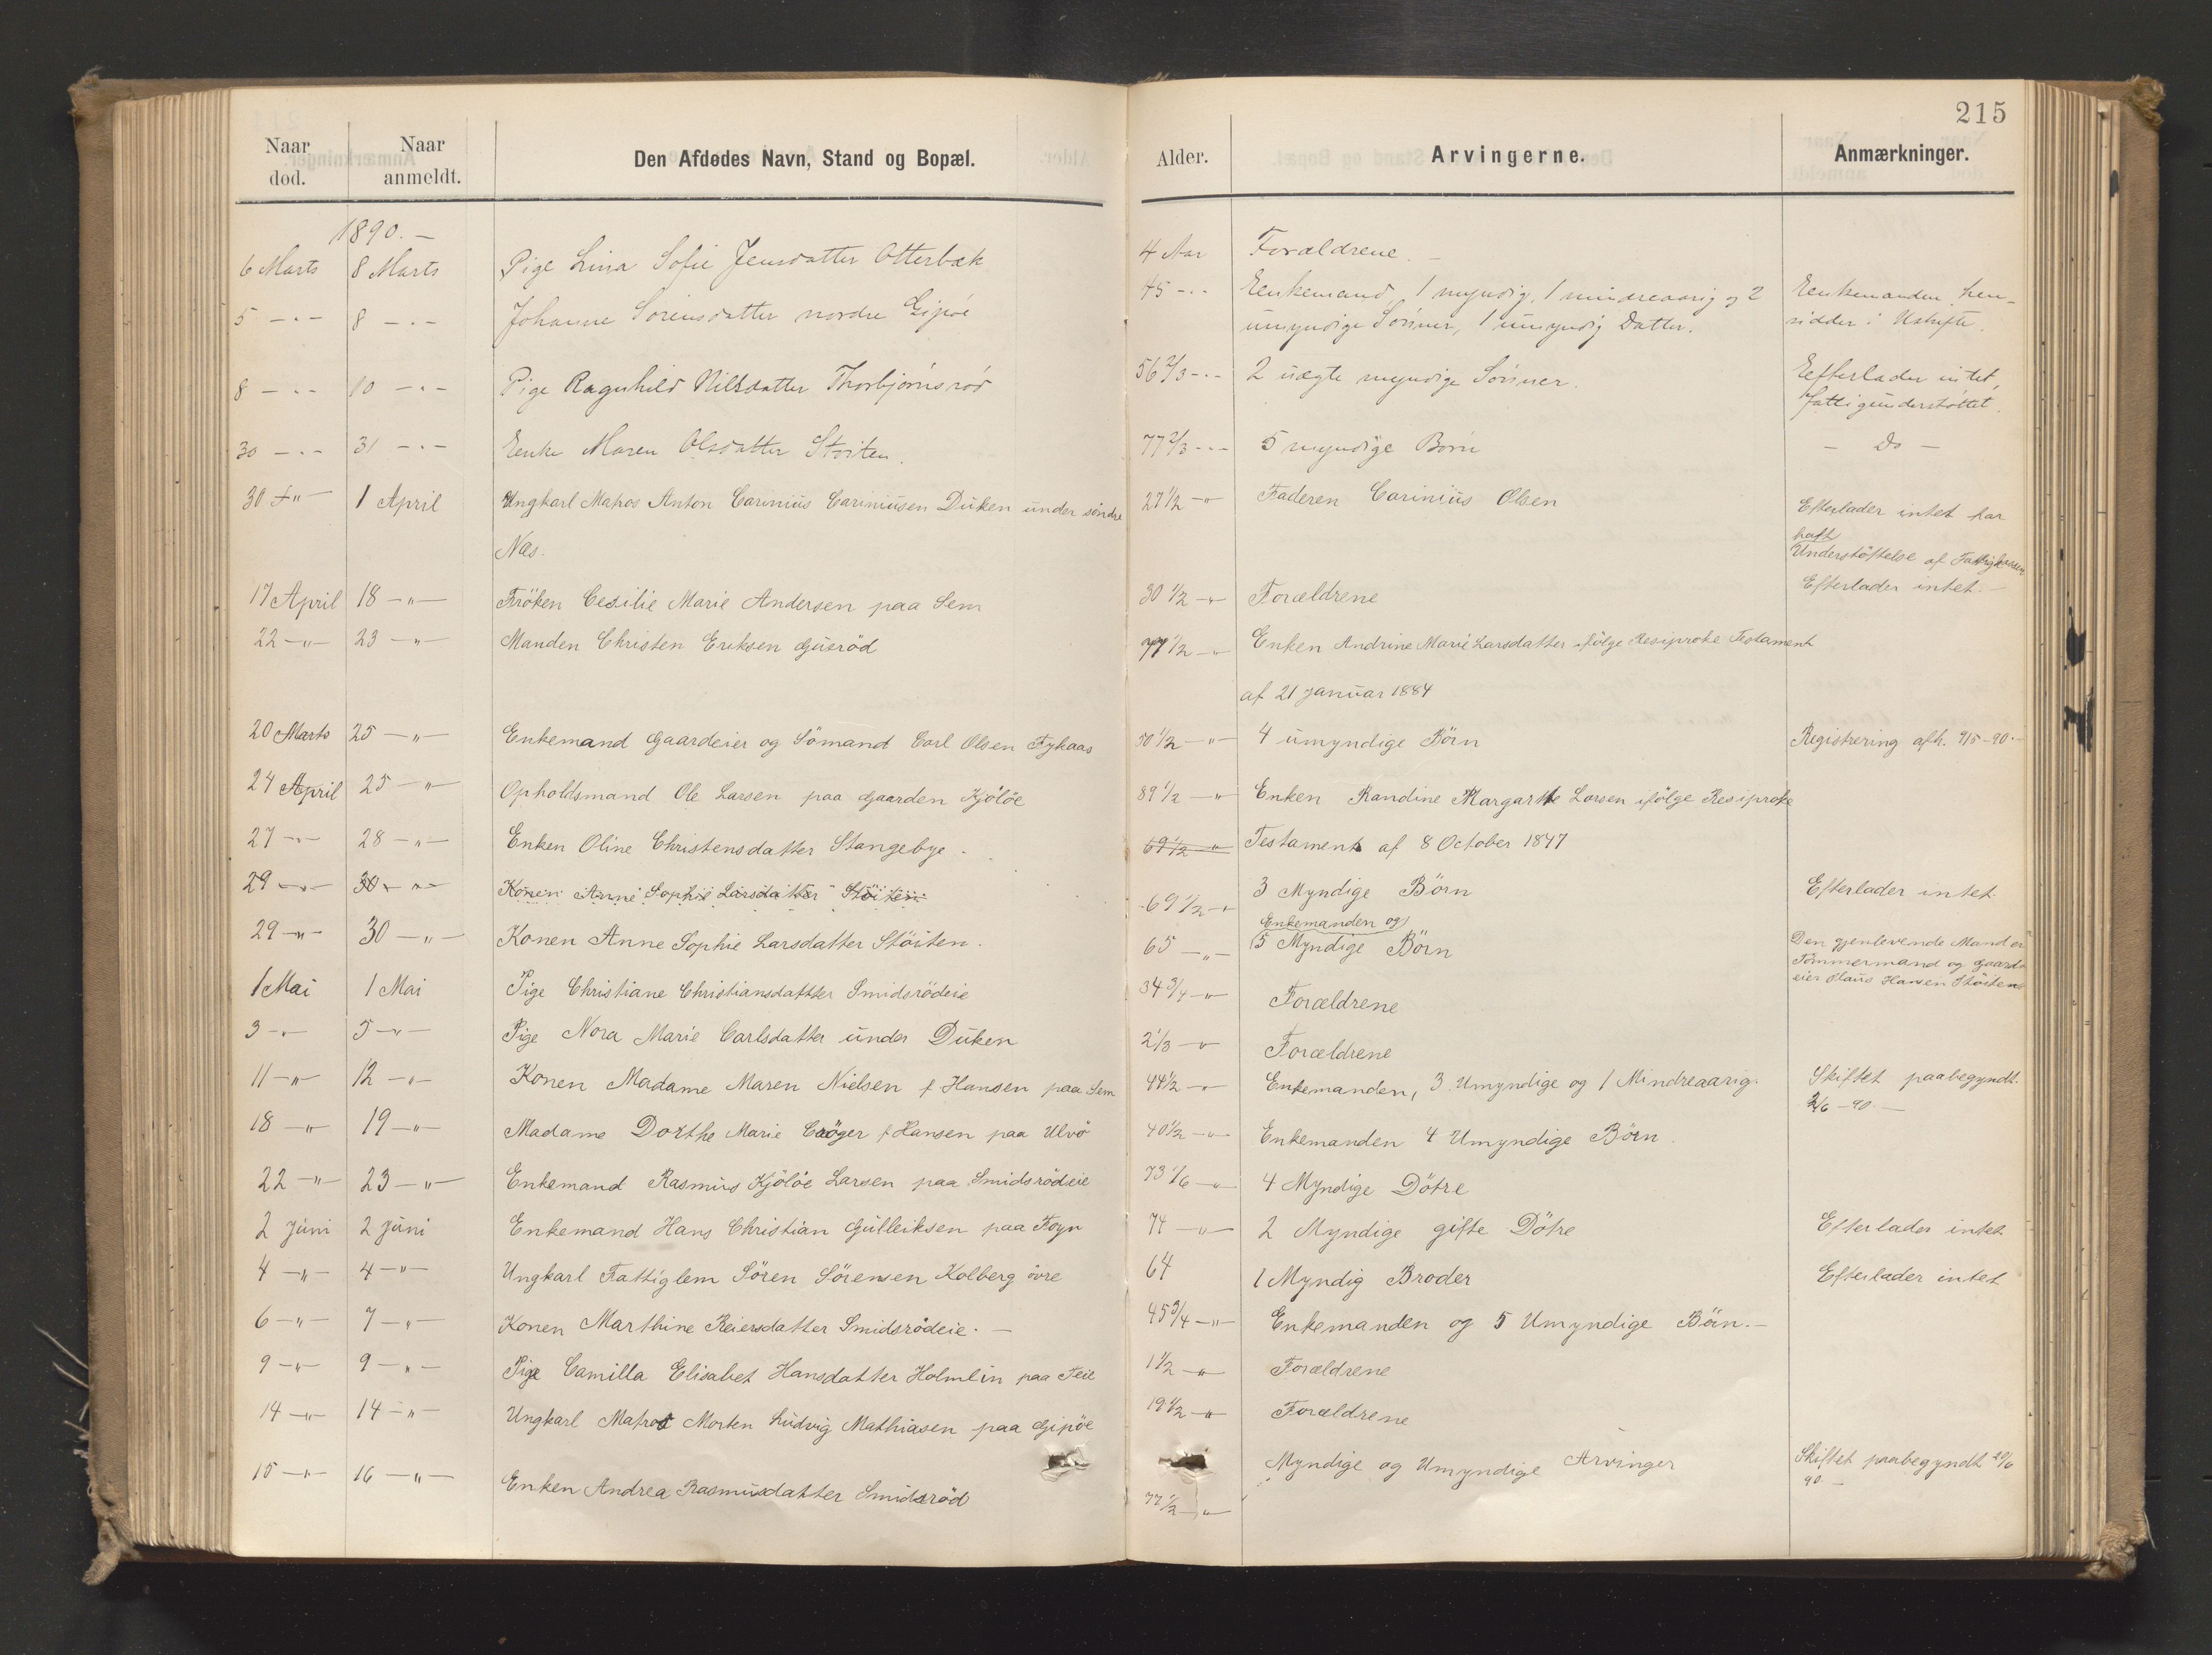 215
Naar død. Naar anmeldt. Den Afdødes Navn, Stand og Bopæl. Alder. Arvingerne. Anmærkninger.
1890. —
6 Marts 8 Marts Pige Lina Sofie Jensdatter Otterbæk 4 Aar Forældrene. —
5 —"— 8 —"— Johanne Sørensdatter nordre Gipöe 45 —"— Enkemand, 1 myndig, 1 mindreaarig og 2 Enkemanden hen-
umyndige Sönner, 1 umyndig Datter. sidder i Uskifte.
8 —"— 10 —"— Pige Ragnhild Nilsdatter Thorbjörnsröd 56 2/3 —"— 2 uægte myndige Sönner. Efterlader intet,
fattigunderstöttet.
30 —"— 31 —"— Enke Maren Olsdatter Stöiten. 77 2/3 —"— 5 myndige Börn — Do —
30 —"— 1 April Ungkarl Matros Anton Carinius Cariniusen Duken under söndre 27 1/2 —"— Faderen Carinius Olsen Efterlader intet har
Næs. haft
Understöttelse af Fattigkassen
17 April 18 —"— Fröken Cesilie Marie Andersen paa Sem 30 1/2 —"— Forældrene Efterlader intet. —
22 —"— 23 —"— Manden Christen Eriksen Gusröd 77 1/2 —"— Enken Andrine Marie Larsdatter ifölge Resiproke Testament
af 21 Januar 1884
20 Marts 25 —"— Enkemand Gaardeier og Sömand Carl Olsen Fykaas 50 1/2 —"— 4 umyndige Börn Registrering afh. 9/5 - 90. —
24 April 25 —"— Opholdsmand Ole Larsen paa Gaarden Kjölöe 89 1/2 —"— Enken Randine Margarthe Larsen ifölge Resiproke
27 —"— 28 —"— Enken Oline Christensdatter Stangebye. 69 1/2 —"— Testament af 8 October 1847
29 —"— 30 —"— Konen Anne Sophie Larsdatter Stöiten 69 1/2 —"— 3 Myndige Börn Efterlader intet.
Enkemanden og
29 —"— 30 —"— Konen Anne Sophie Larsdatter Stöiten. 65 —"— 5 Myndige Börn Den gjenlevende Mand er
Tömmermand og Gaard-
eier Olaus Hansen Stöiten
1 Mai 1 Mai Pige Christiane Christiansdatter Smidsrödeie 34 3/4 —"— Forældrene
3 —"— 5 —"— Pige Nora Marie Carlsdatter under Duken 2 1/3 —"— Forældrene
11 —"— 12 —"— Konen Madame Maren Nielsen f Hansen paa Sem 44 1/2 —"— Enkemanden, 3 Umyndige og 1 Mindreaarig. Skiftet paabegyndt.
2/6 - 90. —
18 —"— 19 —"— Madame Dorthe Marie Cröger f Hansen paa Ulvö 40 1/2 —"— Enkemanden 4 Umyndige Börn.
22 —"— 23 —"— Enkemand Rasmus Kjölöe Larsen paa Smidsrödeie 73 1/6 —"— 4 Myndige Dötre
2 Juni 2 Juni Enkemand Hans Christian Gulleiksen paa Foyn 74 —"— 2 Myndige gifte Dötre Efterlader intet
4 —"— 4 —"— Ungkarl Fattiglem Sören Sörensen Kolberg övre 64 1 Myndig Broder Efterlader intet
6 —"— 7 —"— Konen Marthine Reiersdatter Smidsrödeie. — 45 3/4 —"— Enkemanden og 5 Umyndige Börn. —
9 —"— 9 —"— Pige Camilla Elisabet Hansdatter Holmlin paa Feie 1 1/2 —"— Forældrene
14 —"— 14 —"— Ungkarl Matros Morten Ludvig Mathiasen paa Gipöe 19 1/2 —"— Forældrene
15 —"— 16 —"— Enken Andrea Rasmusdatter Smidsröd 77 1/2 —"— Myndige og Umyndige Arvinger Skiftet paabegyndt 20/6
90. —